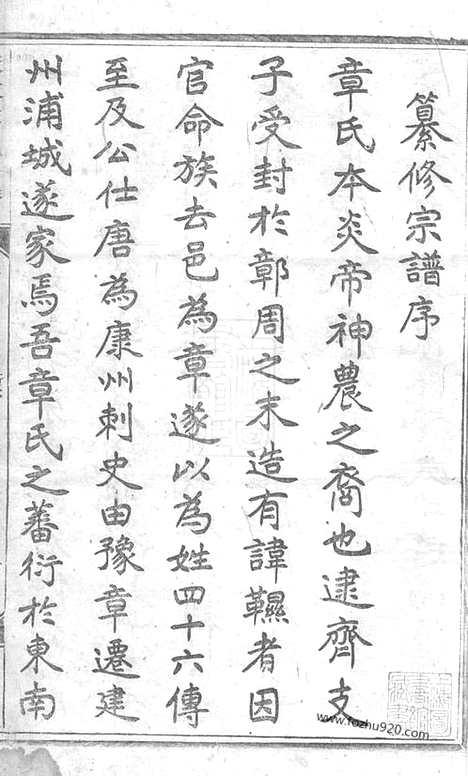 纂修宗譜序
章氏本炎帝神農之裔也逮齊支
子受封於鄣周之末造有諱韅者因
官命族去邑為章遂以為姓四十六傳
至及公仕唐為康州刺史由豫章遷建
州浦城遂家焉吾章氏之蕃衍於東南
www.fozhu920.com